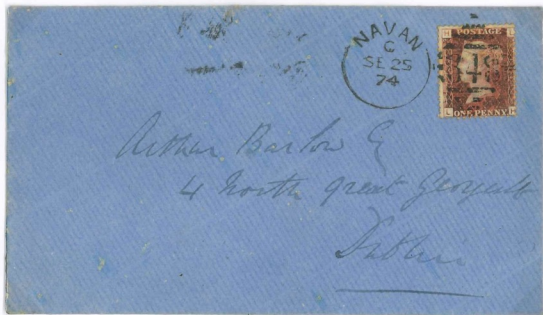 NAVAN
C
SE 25
74
POSTAGE
ONE PENNY
Arthur Barlow E
4 North great Georges St
Dublin